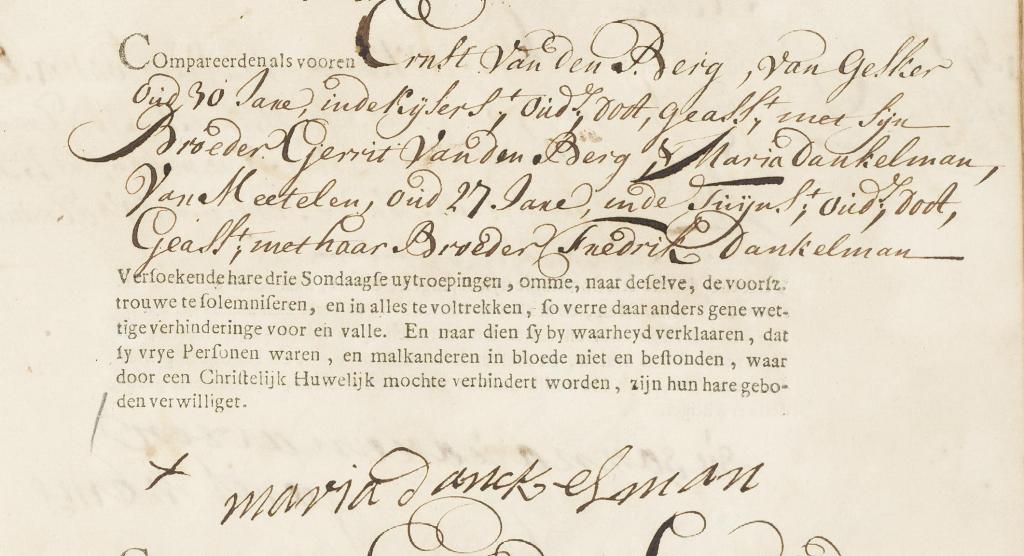 Compareerden als vooren Ernst Van den Berg, Van Gesker
Oud 30 Jare, in de Kysers t, Oud.s, doot, geass.t, met syn
Broeder Gerrit Van den Berg, & Maria Dankelman,
Van Meetelen, oud 27 Jare, in de Tuyns t, oud.s, doot,
Geass.t, met haar Broeder Fredrik Dankelman
Versoekende hare drie Sondaagse uytroepingen, omme, naar deselve, de voorsz.
trouwe te solemniseren, en in alles te voltrekken, so verre daar anders gene wet-
tige verhinderinge voor en valle. En naar dien sy by waarheyd verklaaren, dat
sy vrye Personen waren, en malkanderen in bloede niet en bestonden, waar
door een Christelijk Huwelijk mochte verhindert worden, zijn hun hare gebo-
den verwilliget.
x maria danckelman